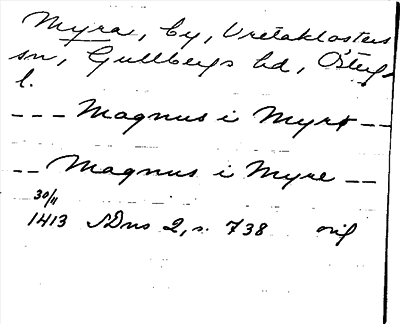 Myra, by, Vretaklosters
sn, Gullbergs hd, Östg.
l.
--- Magnus i Myrø --
-- Magnus i Myre --
30/11
1413 SDns 2, s. 738 orig